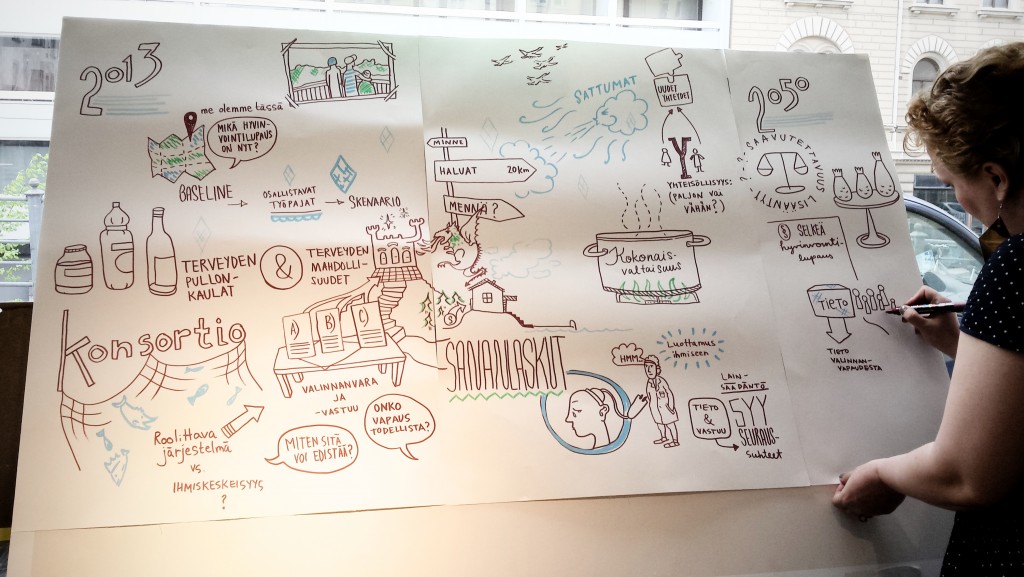 2013
me olemme tässä
MIKÄ HYVIN-
VOINTILUPAUS
ON NYT?
BASELINE
OSALLISTAVAT
TYÖPAJAT
SKENAARIO
TERVEYDEN
PULLON-
KAULAT
&
TERVEYDEN
MAHDOLLI-
SUUDET
Konsortio
A)
B)
C)
VALINNANVARA
JA
-VASTUU
RooliHava
järjestelmä
vs.
IHMISKESKEISYYS
?
MITEN SITÄ
VOI EDISTÄÄ?
ONKO
VAPAUS
TODELLISTA?
MINNE
HALUAT 20km
MENNÄ?
$
SANANLASKUT
SATTUMAT
UUDET
YHTEYDET
Y
YHTEISÖLLISYYS:
(PALJON VAI
VÄHÄN?)
Kokonais-
valtaisuus
HMM..
Luottamus
ihmiseen
LAIN-
SÄÄDÄNTÖ
TIETO
&
VASTUU
SYY
SEURAUS-
suhteet
2050
SAAVUTETTAVUUS
LISÄÄNTYY
$ SELKEÄ
hyvinvointi-
lupaus
TIETO
TIETO
VALINNAN-
VAPAUDESTA